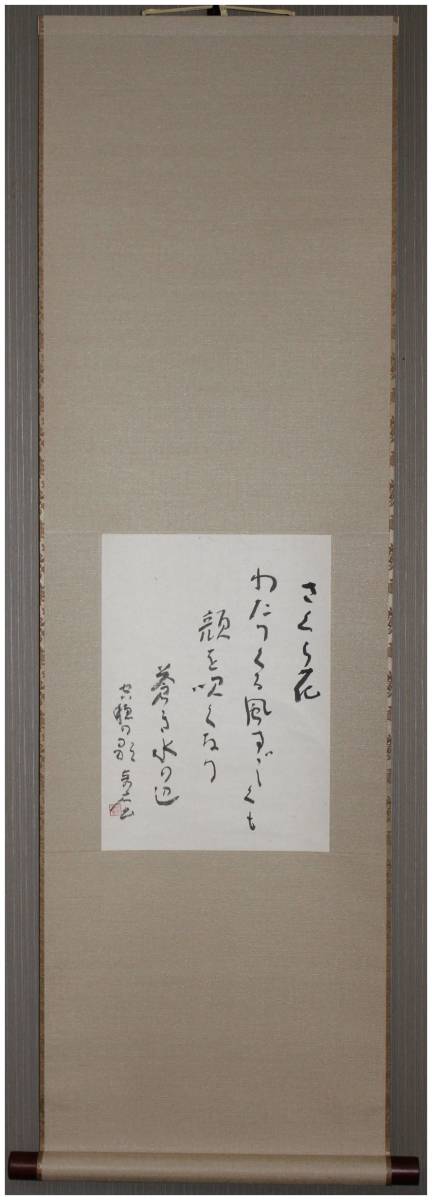 さくら花
わたりくる風すゞしくも
顔を吹くなり
蒼き水の辺
空穂の歌